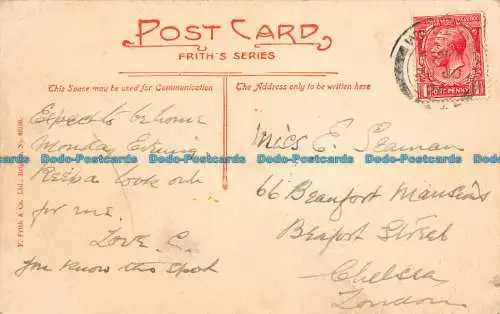 POST CARD
FRITH'S SERIES
This Space may be used for Communication
The Address only to be written here
Expect to be home
Monday Evening
Keep a look out
for me.
Love. C.
you know this spot
Miss E. Seaman
66 Beaufort Mansions
Beafort Street
Chelsea
London
F. Frith & Co., Ltd., Reigate. No.
ONE PENNY
Dodo-Postcards Dodo-Postcards Dodo-Postcards Dodo-Postcards